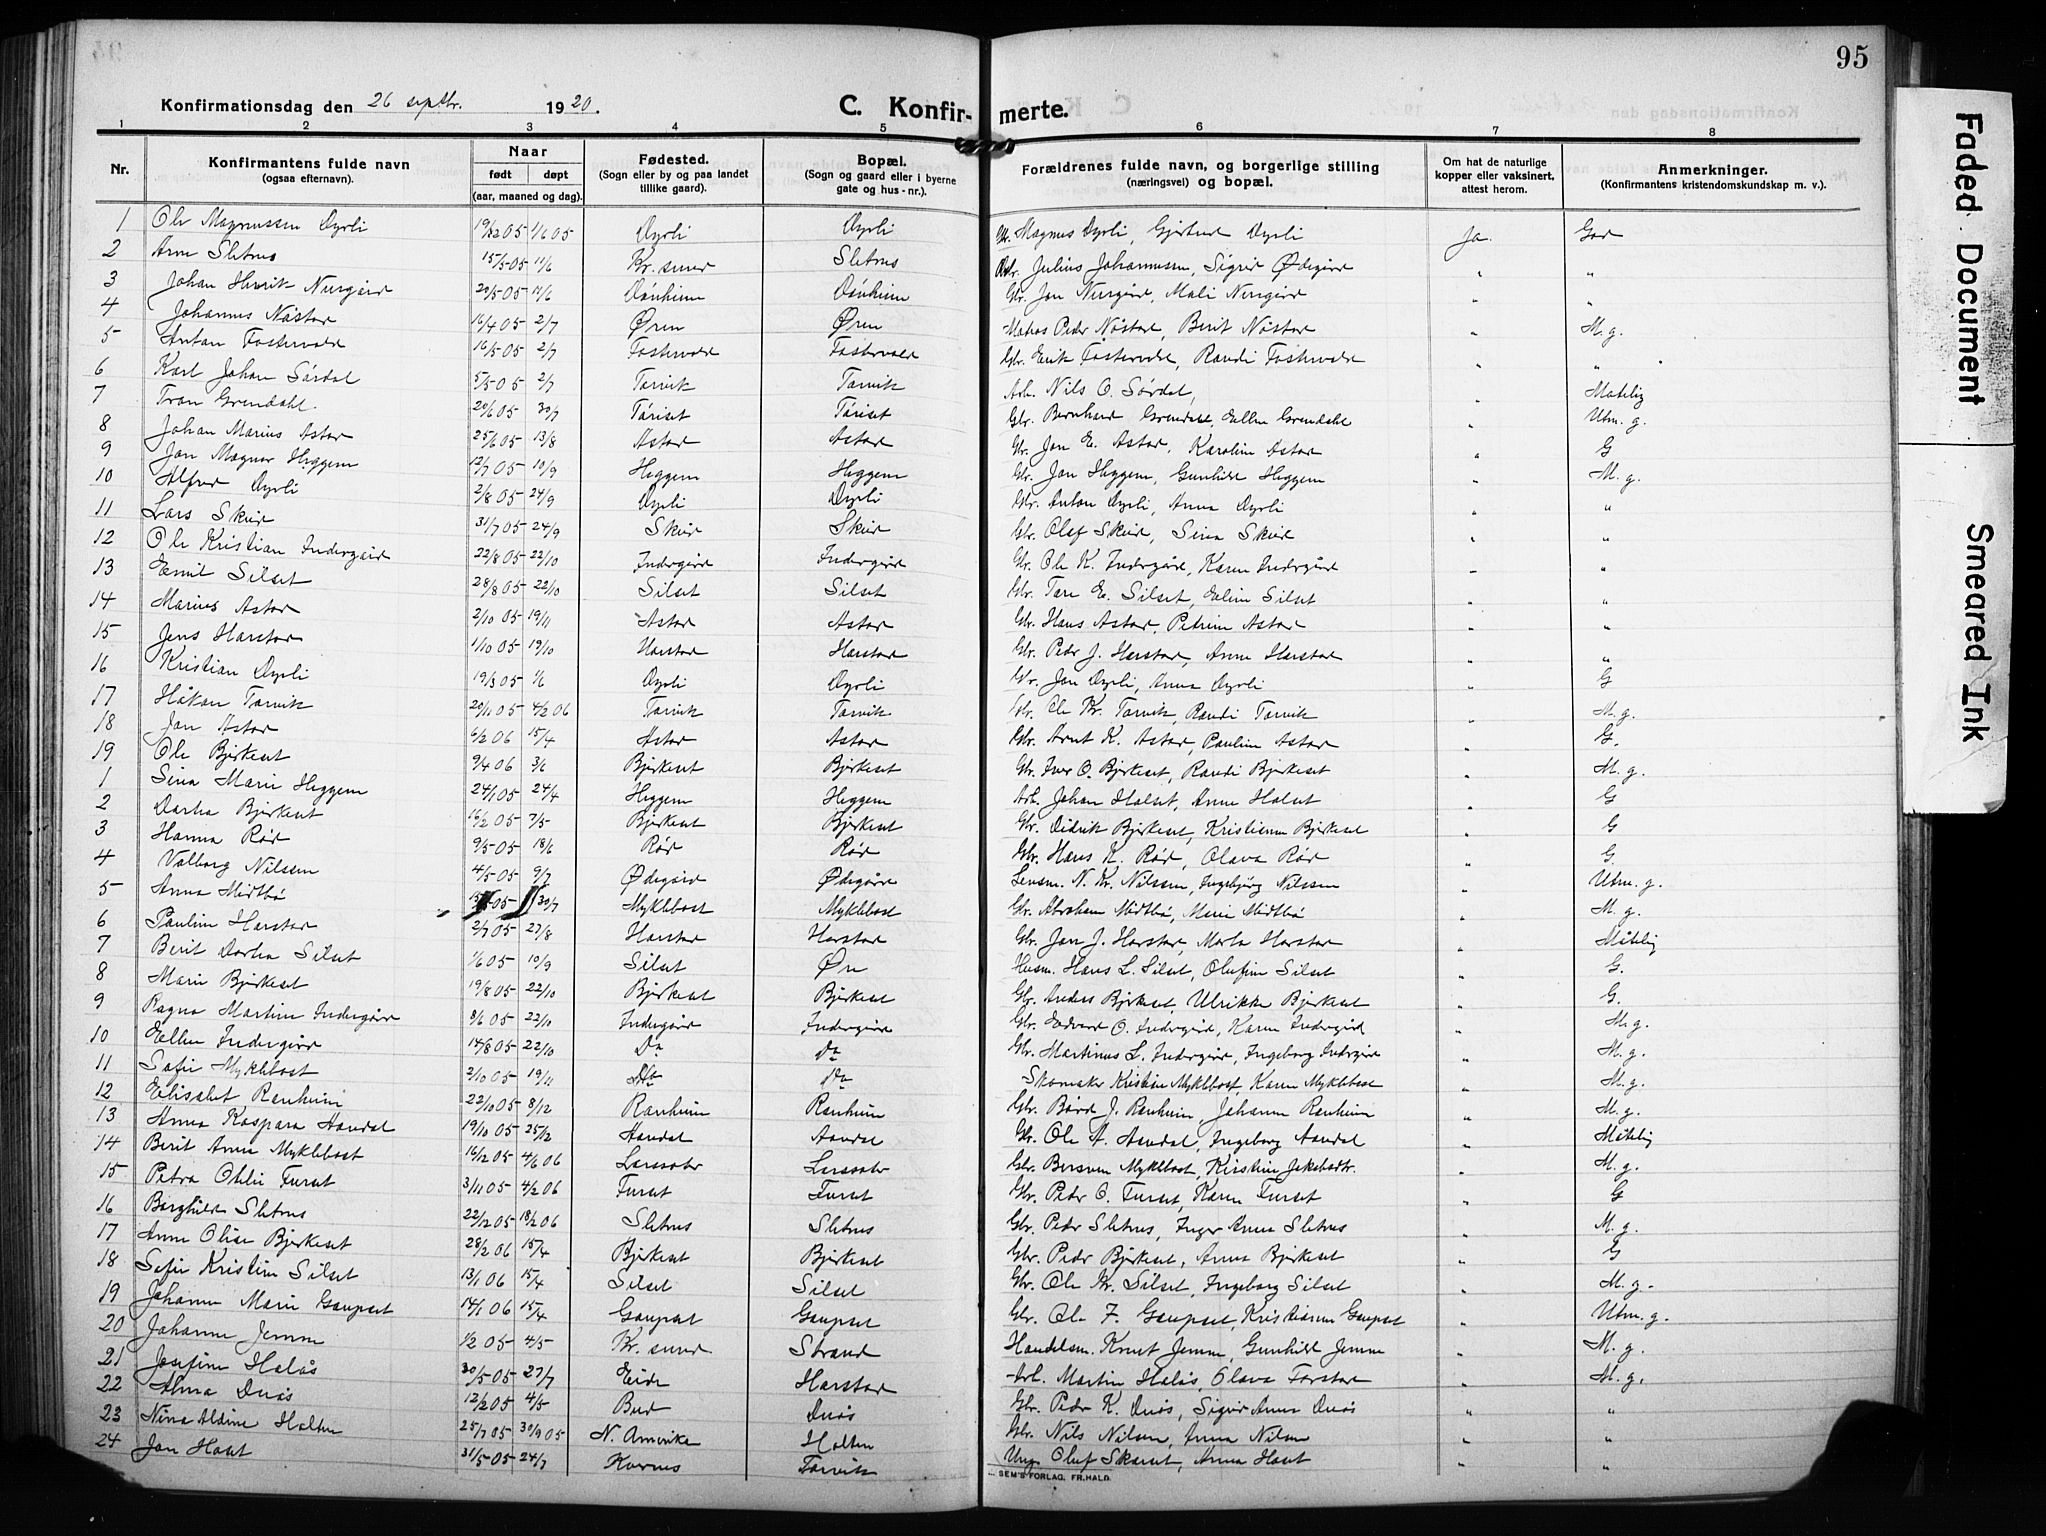 95
Konfirmationsdag den 26 septbr. 1920.
C. Konfir- merte.
1 2 3 4 5 6 7 8
Nr. Konfirmantens fulde navn (ogsaa efternavn). Naar født døpt (aar, maaned og dag). Fødested. (Sogn eller by og paa landet tillike gaard). Bopæl. (Sogn og gaard eller i byerne gate og hus-nr.). Forældrenes fulde navn, og borgerlige stilling (næringsvei) og bopæl. Om hat de naturlige kopper eller vaksinert, attest herom. Anmerkninger. (Konfirmantens kristendomskundskap m. v.).
1 Ole Magnussen Dyrli 19/2 05 1/6 05 Dyrli Dyrli Gbr. Magnus Dyrli, Gjertrud Dyrli Ja. God
2 Arne Sletnes 15/5 05 11/6 Kr.sund Sletnes Julius Johannessen, Sigrid Ødegård " "
3 Johan Henrik Nersgård 20/5 05 11/6 Gbr. Jon Nersgård, Mali Nersgård " "
4 Johannes Nåstad 16/4 05 2/7 Øren Øren Matros Peder Nåstad, Berit Nåstad " M. g.
5 Anton Fostervold 16/5 05 2/7 Fostervold Fostervold Gbr. Erik Fostervold, Randi Fostervold " "
6 Karl Johan Sørdal 5/5 05 2/7 Torvik Torvik Arb. Nils O. Sørdal, " Måtelig
7 Tron Grendahl. 20/6 05 30/7 Tøriset Tøriset Gbr. Bernhard Grendahl, Ellen Grendahl " Utm. g.
8 Johan Marius Astad 25/6 05 13/8 Astad Astad Gbr. Jon E. Astad, Karoline Astad " G
9 Jon Magnar Heggem 12/7 05 10/9 Heggem Heggem Gbr. Jon Heggem, Gunhild Heggem " M. g.
10 Alfred Dyrli 2/8 05 24/9 Dyrli Dyrli Gbr. Anton Dyrli, Anna Dyrli " "
11 Lars Skeid 31/7 05 24/9 Skeid Skeid Gbr. Olaf Skeid, Sina Skeid " "
12 Ole Kristian Indergård 22/8 05 22/10 Indergård Indergård Gbr. Ole K. Indergård, Karen Indergård " "
13 Emil Silset 28/8 05 22/10 Silset Silset Gbr. Tore E. Silset, Eline Silset " "
14 Marius Astad 2/10 05 19/11 Astad Astad Gbr. Hans Astad, Petrine Astad " "
15 Jens Harstad 1/10 05 19/10 Harstad Harstad Gbr. Peder J. Harstad, Anne Harstad " "
16 Kristian Dyrli 19/3 05 1/6 Dyrli Dyrli Gbr. Jon Dyrli, Anna Dyrli " G
17 Håkon Torvik 20/11 05 4/2 06 Torvik Torvik Gbr. Ole Kr. Torvik, Randi Torvik " M. g.
18 Jon Astad 6/2 06 15/4 Astad Astad Gbr. Arnt K. Astad, Pauline Astad " G.
19 Ole Bjerkeset 9/4 06 3/6 Bjerkeset Bjerkeset Gbr. Iver O. Bjerkeset, Randi Bjerkeset " M. g.
1 Sina Marie Heggem 24/1 05 24/4 Heggem Heggem Arb. Johan Halset, Anne Halset " G
2 Dortea Bjerkeset 16/2 05 7/5 Bjerkeset Bjerkeset Gbr. Didrik Bjerkeset, Kristianna Bjerkeset " G
3 Hanna Rød 9/5 05 18/6 Rød Rød Gbr. Hans K. Rød, Olava Rød " G.
4 Valborg Nilssen 4/5 05 9/7 Ødegård Ødegård Lensm. N. Kr. Nilssen, Ingebjørg Nilssen " Utm. g.
5 Anna Midtbø 05 30/7 Myklebost Myklebost Gbr. Abraham Midtbø, Marie Midtbø " M. g.
6 Pauline Harstad 2/7 05 27/8 Harstad Harstad Gbr. Jon J. Harstad, Marta Harstad " Måtelig
7 Berit Dortea Silset 1/6 05 10/9 Silset Øre Husm. Hans L. Silset, Olufine Silset " G.
8 Marie Bjerkeset 19/8 05 22/10 Bjerkeset Bjerkeset Gbr. Anders Bjerkeset, Ulrikke Bjerkeset " G.
9 Ragna Martine Indergård 8/6 05 22/10 Indergård Indergård Gbr. Edvard O. Indergård, Karen Indergård " M. g.
10 Ellen Indergård 14/8 05 22/10 Do Do Gbr. Martinus L. Indergård, Ingeborg Indergård " M. g.
11 Sofie Myklebost 2/10 05 19/11 Do Do Skomaker Kristian Myklebost, Karen Myklebost " M. g.
12 Elisabet Ranheim 22/10 05 8/12 Ranheim Ranheim Gbr. Bård J. Ranheim, Johanne Ranheim " M. g.
13 Anna Kaspara Aandal 19/10 05 25/12 Aandal Aandal Gbr. Ole A. Aandal, Ingeborg Aandal " Måtelig
14 Berit Anna Myklebost 16/12 05 4/6 06 Larssæter Larssæter Gbr. Bersven Myklebost, Kristine Jakobsdtr. " M. g.
15 Petra Otilie Furset 3/11 05 4/2 06 Furset Furset Gbr. Peder O. Furset, Karen Furset " G
16 Borghild Sletnes 22/12 05 18/2 06 Sletnes Sletnes Gbr. Peder Sletnes, Inger Anna Sletnes " M. g.
17 Anne Olise Bjerkeset 28/2 06 15/4 Bjerkeset Bjerkeset Gbr. Peder Bjerkeset, Anna Bjerkeset " G
18 Sofie Kristine Silset 13/1 06 15/4 Silset Silset Gbr. Ole Kr. Silset, Ingeborg Silset " M. g.
19 Johanne Marie Gaupset 14/1 06 15/4 Gaupset Gaupset Gbr. Ole F. Gaupset, Kristianna Gaupset " Utm. g.
20 Johanne Jemne 1/2 05 4/5 Kr.sund Strand Handelsm. Knut Jemne, Gunhild Jemne " M. g.
21 Josefine Halås 30/5 05 27/7 Eide Harstad Arb. Martin Halås, Olava " M. g.
22 Alma 12/2 05 4/5 Bud Gbr. Peder K. Sigrid Anna " "
23 Nina Aldine Holten 25/7 05 30/9 05 N. Amerika Holten Gbr. Nils Nilsen, Anna Nilsen " "
24 Jon Hoset 31/5 05 24/7 Kvernes Torvik Ung. Oluf Skarset, Anna Hoset " "
SEM'S FORLAG, FR.HALD.
Faded Document
Smeared Ink